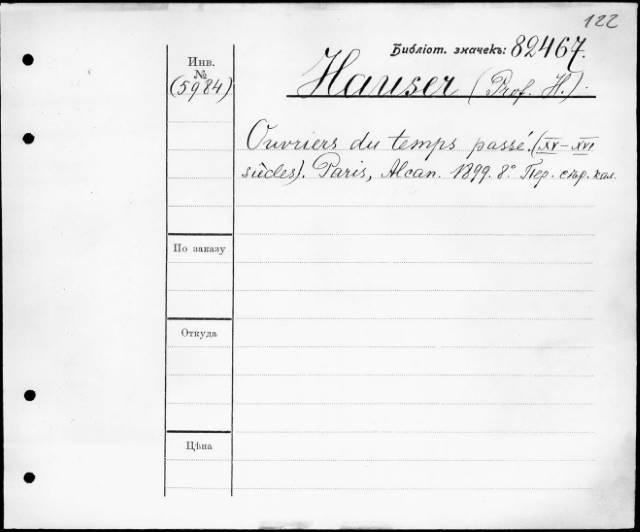 122
Библіот. значекъ: 82467.
Инв.
№
(5984)
Hauser (Prof. H.).
Ouvriers du temps passé. (XV–XVI
siècles). Paris, Alcan. 1899. 8°
По заказу
Откуда
Цѣна